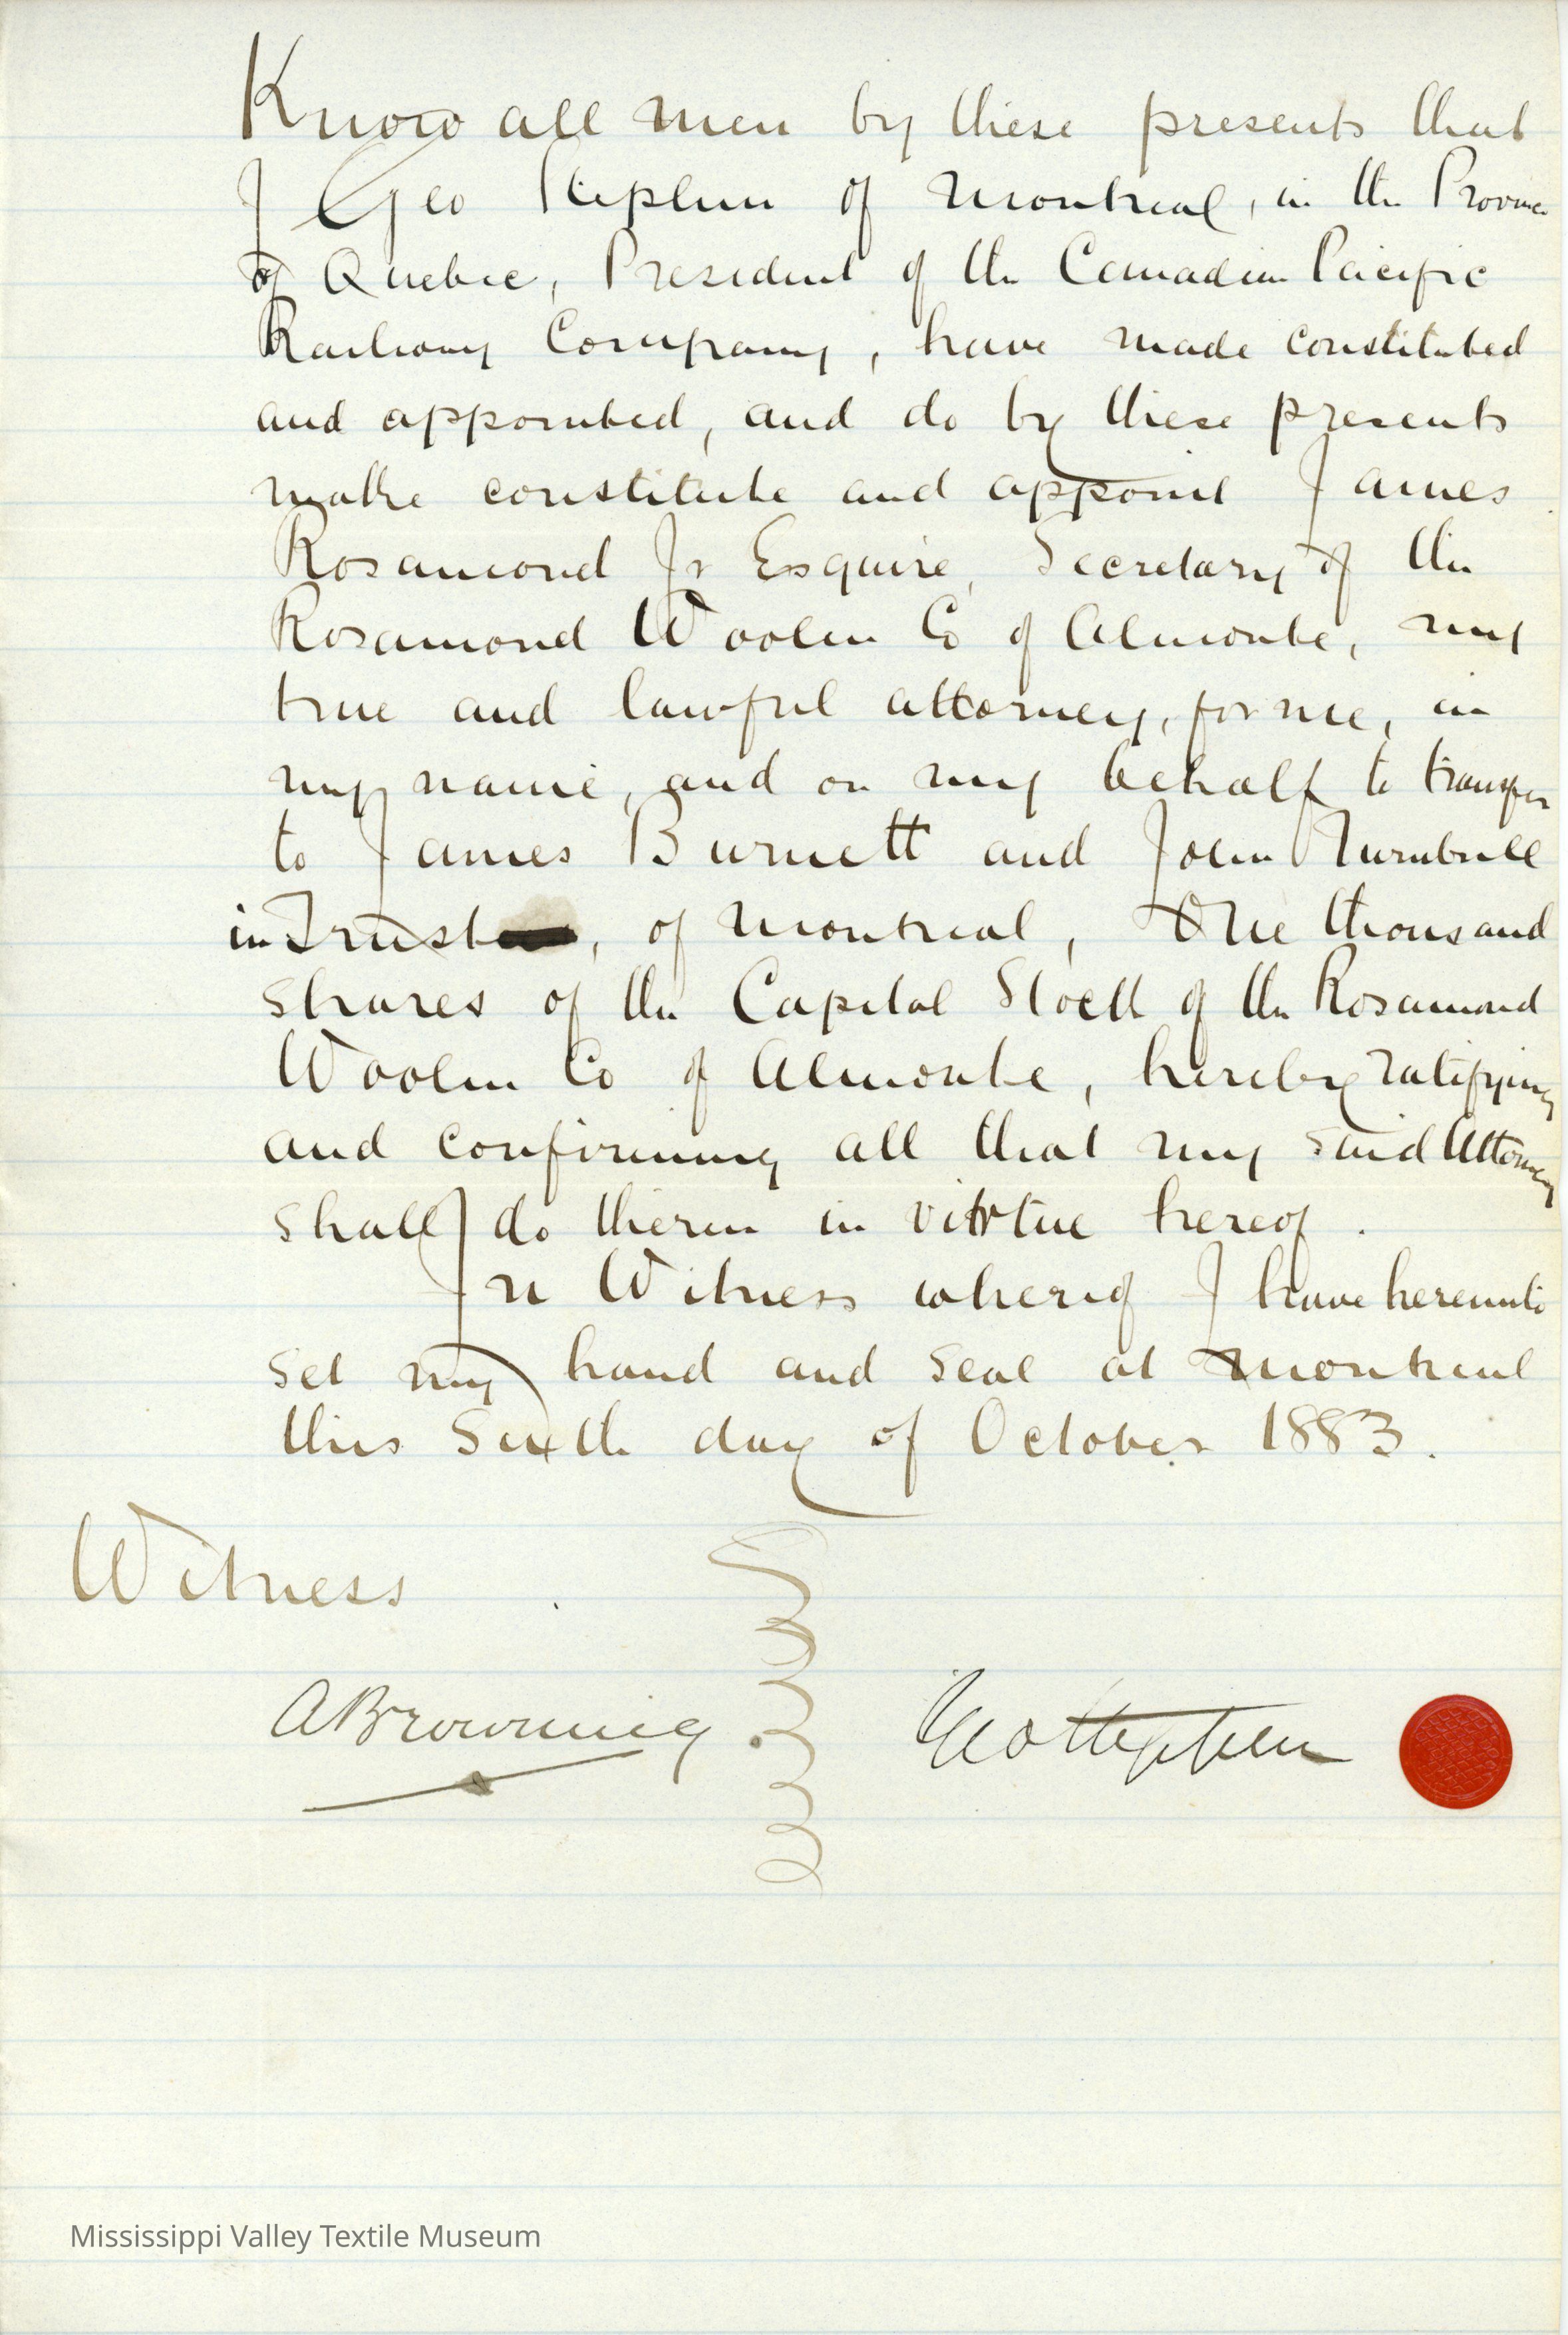 Know all men by these presents that
I Geo Stephen of Montreal, in the Province
of Quebec, President of the Canadian Pacific
Railway Company, have made constituted
and appointed, and do by these presents
make constitute and appoint James
Rosamond Jr Esquire, Secretary of the
Rosamond Woolen Co of Almonte, my
true and lawful attorney, for me, in
my name, and on my behalf to transfer
to James Burnett and John Turnbull
in Trust, of Montreal, One thousand
shares of the Capital Stock of the Rosamond
Woolen Co of Almonte, hereby ratifying
and confirming all that my said Attorney
shall do therein in virtue hereof.
In Witness whereof I have hereunto
set my hand and seal at Montreal
this Sixth day of October 1883.
Witness
A Browning
Geo Stephen
Mississippi Valley Textile Museum